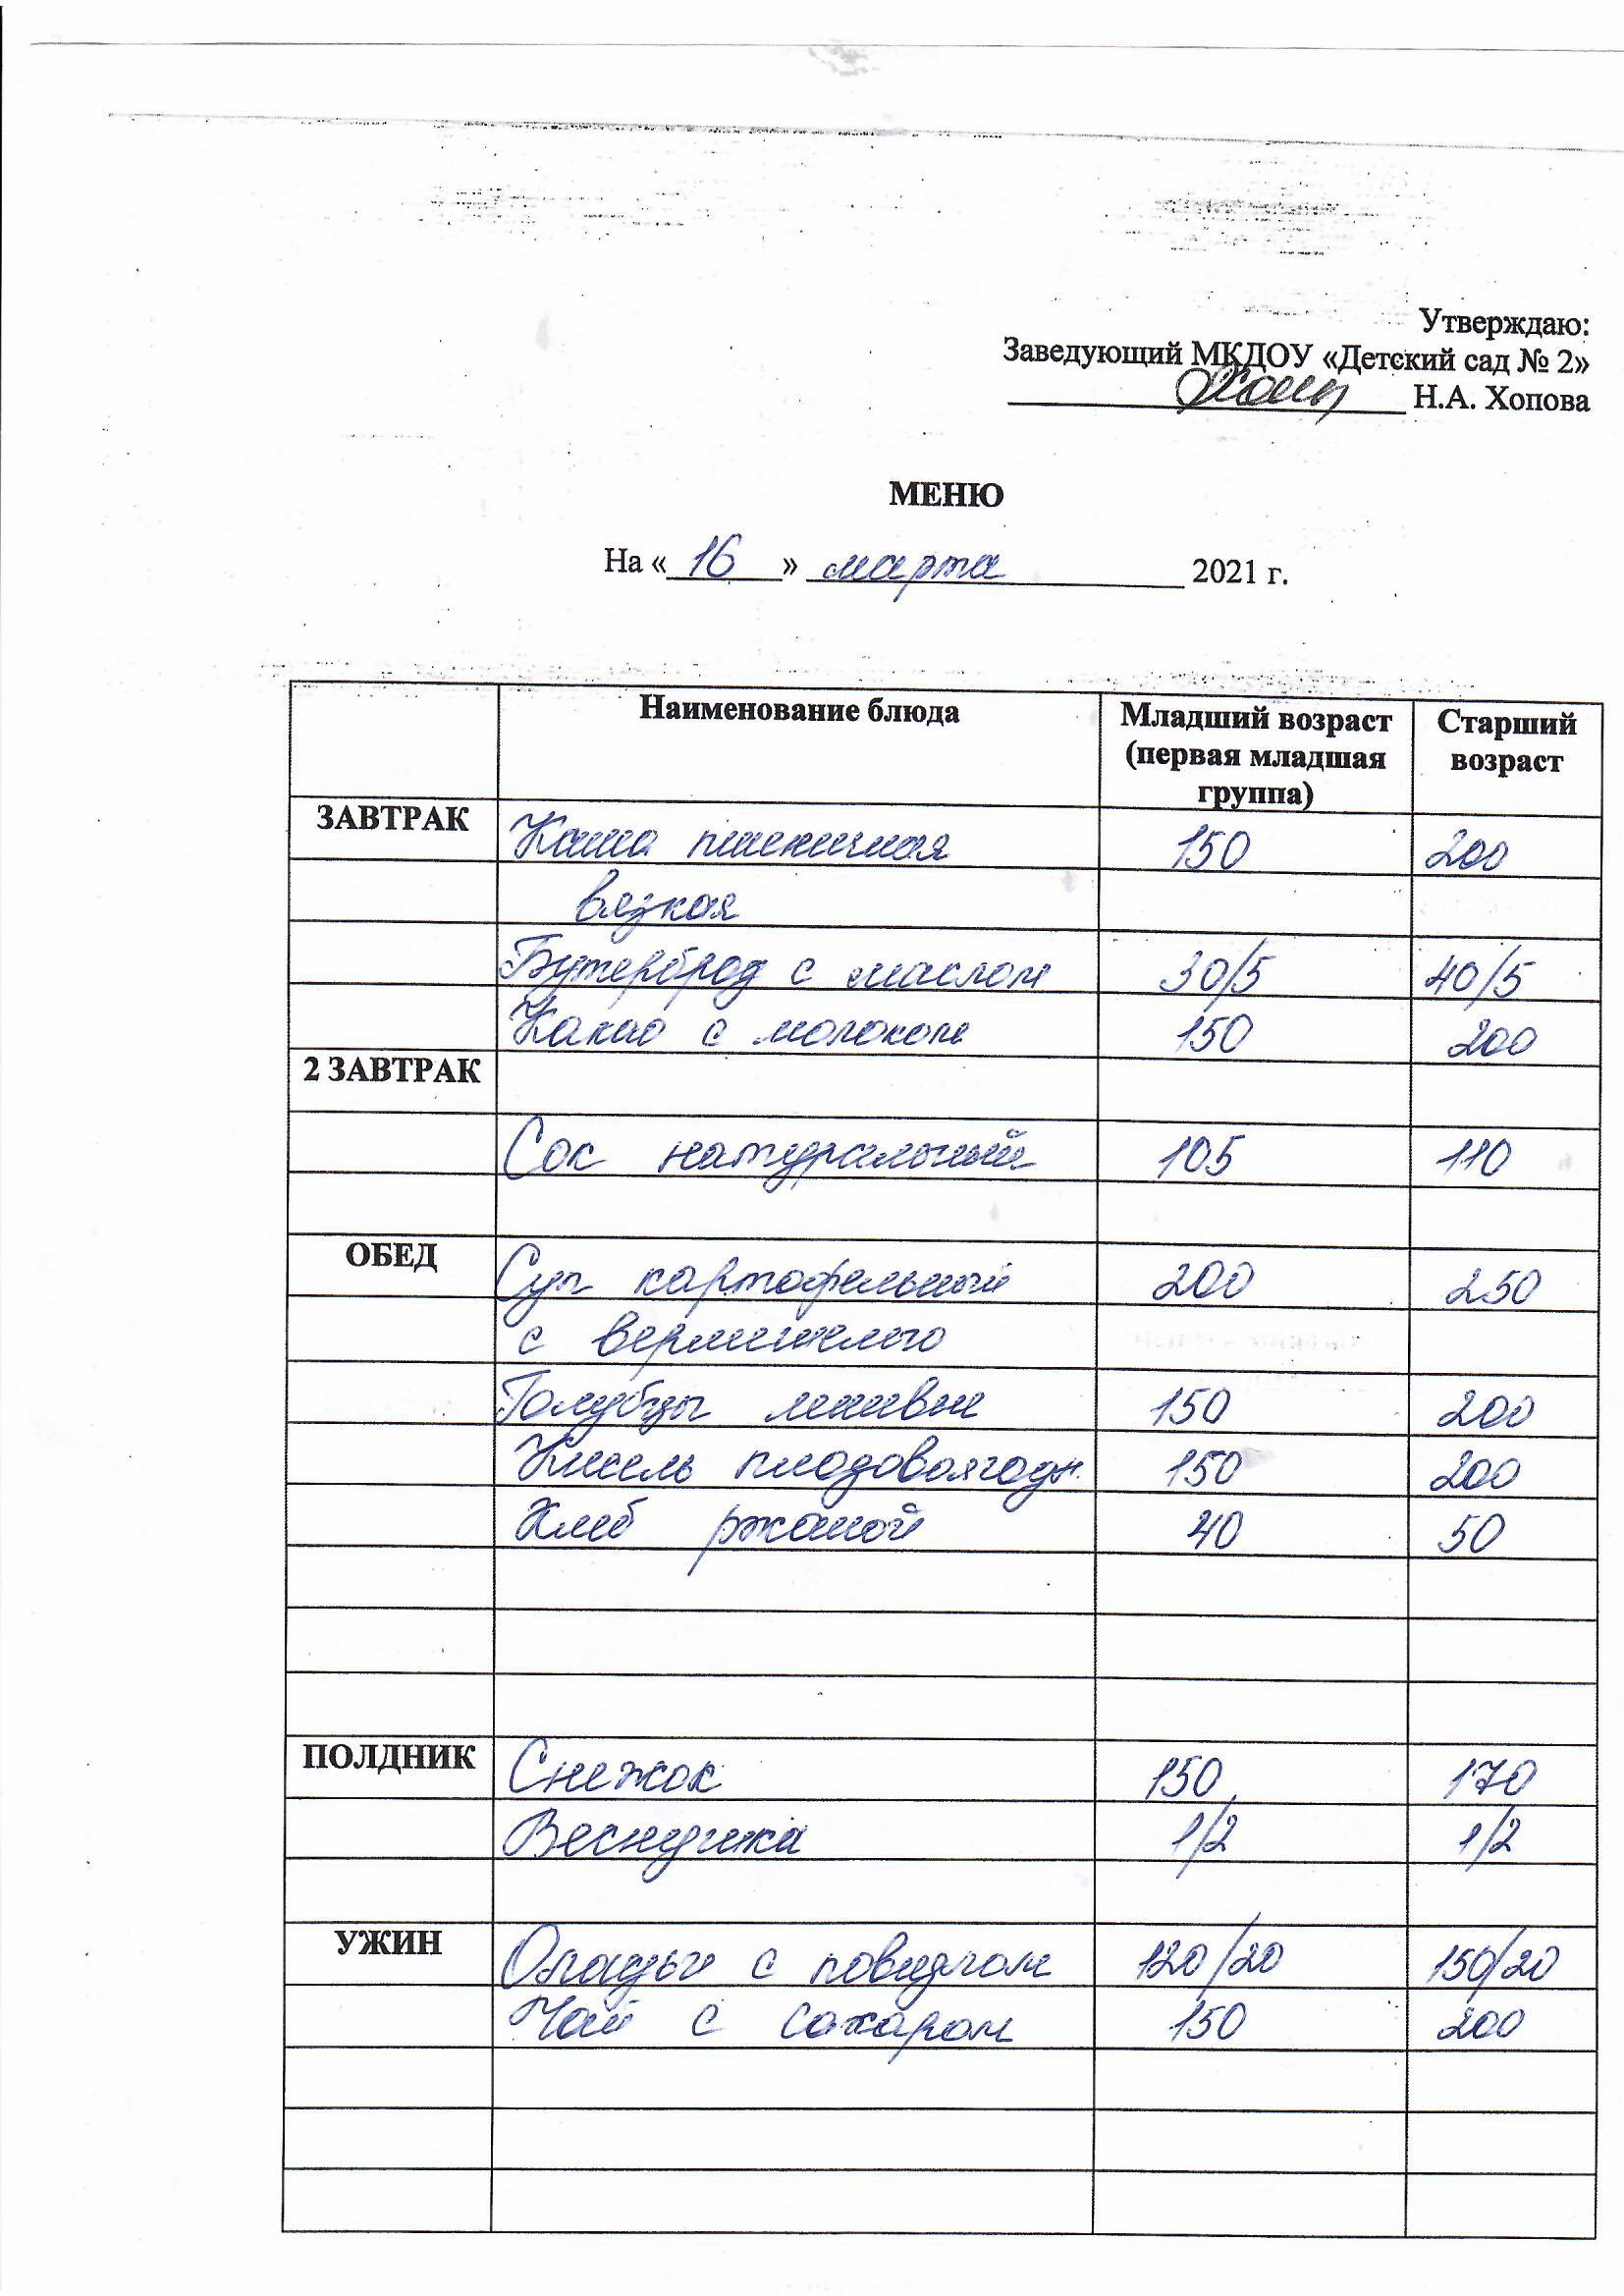 Утверждаю:
Заведующий МКДОУ «Детский сад № 2»
Н.А. Хопова
МЕНЮ
На « 16 » марта 2021 г.
Наименование блюда Младший возраст (первая младшая группа) Старший возраст
ЗАВТРАК Каша пшеничная 150 200
вязкая
Бутерброд с маслом 30/5 40/5
Какао с молоком 150 200
2 ЗАВТРАК
Сок натуральный 105 110
ОБЕД Суп картофельный 200 250
с вермишелью
Голубцы ленивые 150 200
Кисель плодовоягодн. 150 200
Хлеб ржаной 40 50
ПОЛДНИК Снежок 150 170
Веснушка 1/2 1/2
УЖИН Оладьи с повидлом 120/20 150/20
Чай с сахаром 150 200